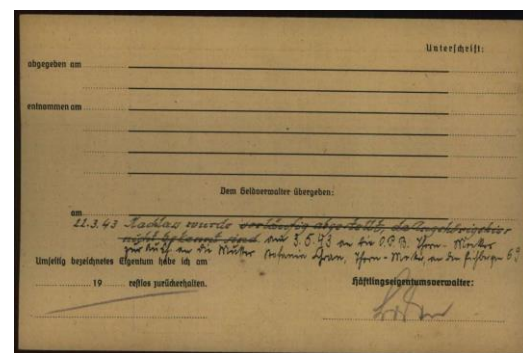 Unterschrift:
abgegeben am
entnommen am
Dem Geldverwalter übergeben:
am
22.3.43 Nachlass wurde vorläufig abgestellt, da Angehörige hier
nicht bekannt sind am 3.5.43 an die
zurück an die Mutter
Umseitig bezeichnetes Eigentum habe ich am
19 restlos zurückerhalten.
Häftlingseigentumsverwalter: